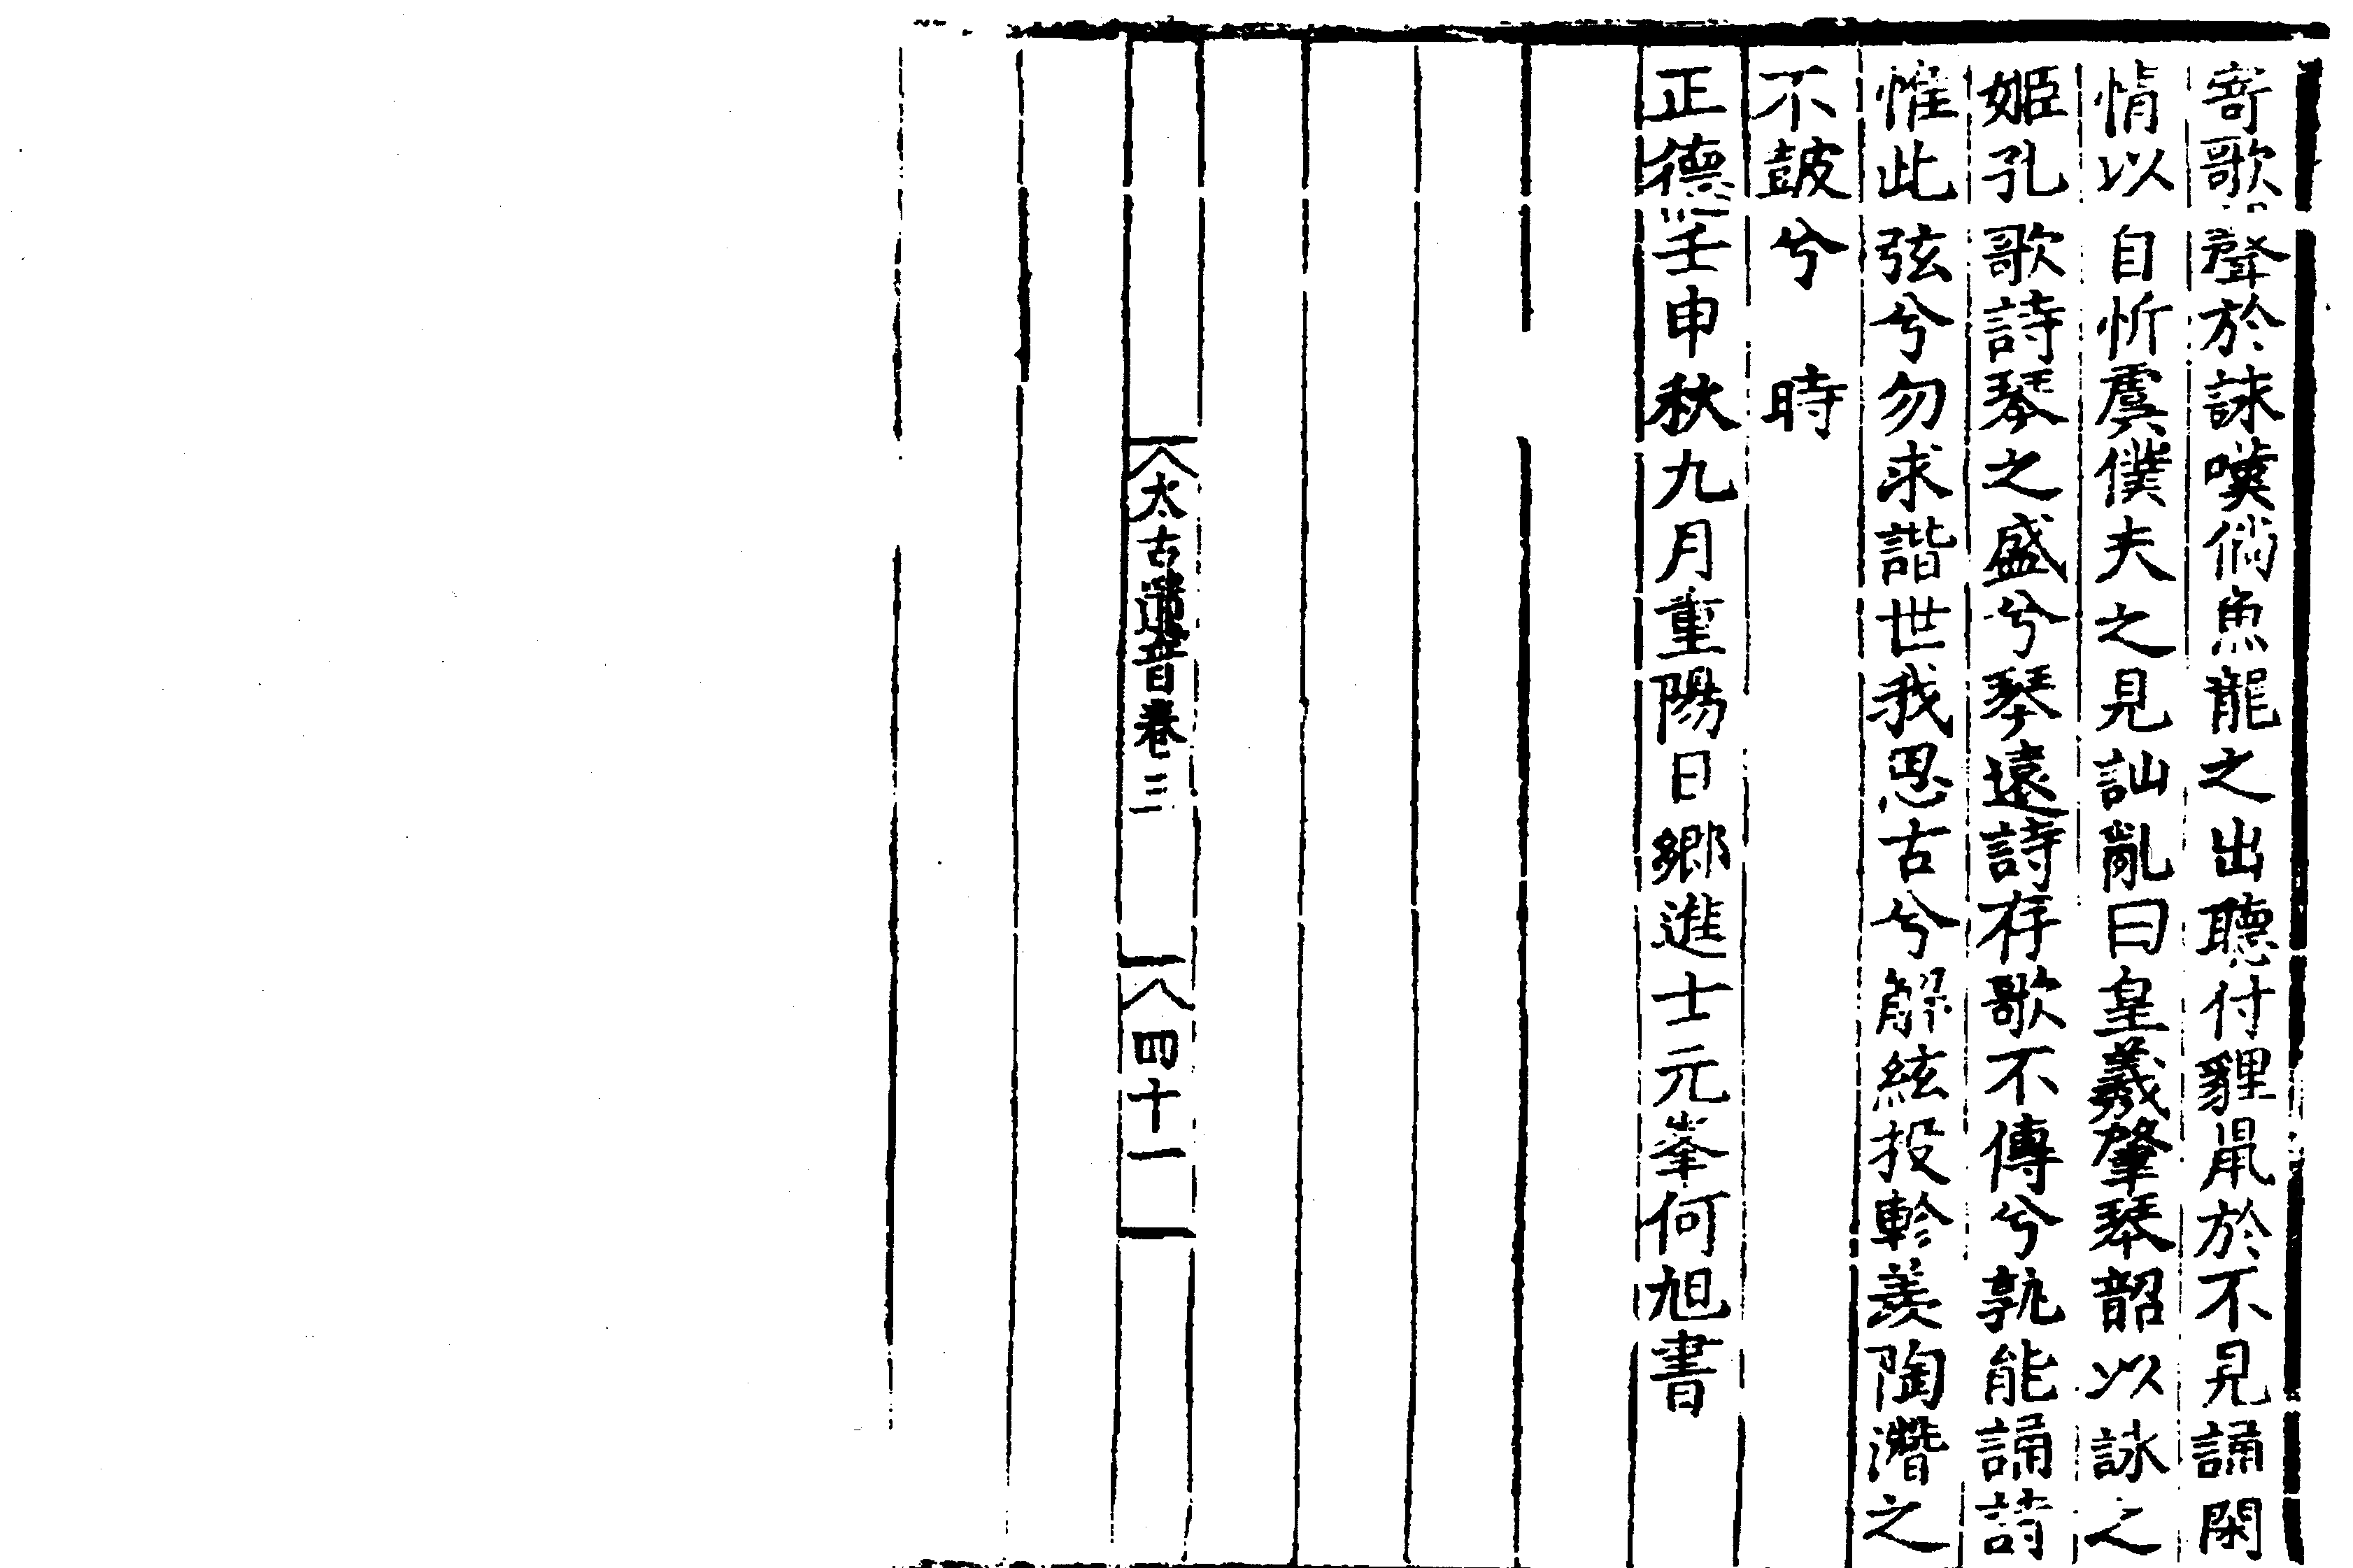 寄歌聲於詠嘆倘魚龍之出聽付貍鼠於不見誦閑
情以自忻虞僕夫之見訕亂曰皇羲肇琴韶以詠之
姬孔歌詩琴之盛兮琴遠詩存歌不傳兮孰能誦詩
惟此弦兮勿求諧世我思古兮解絃投軫羨陶潛之
不皷兮時
正德壬申秋九月重陽日鄉進士元峯何旭書
太古遺音卷三
四十一